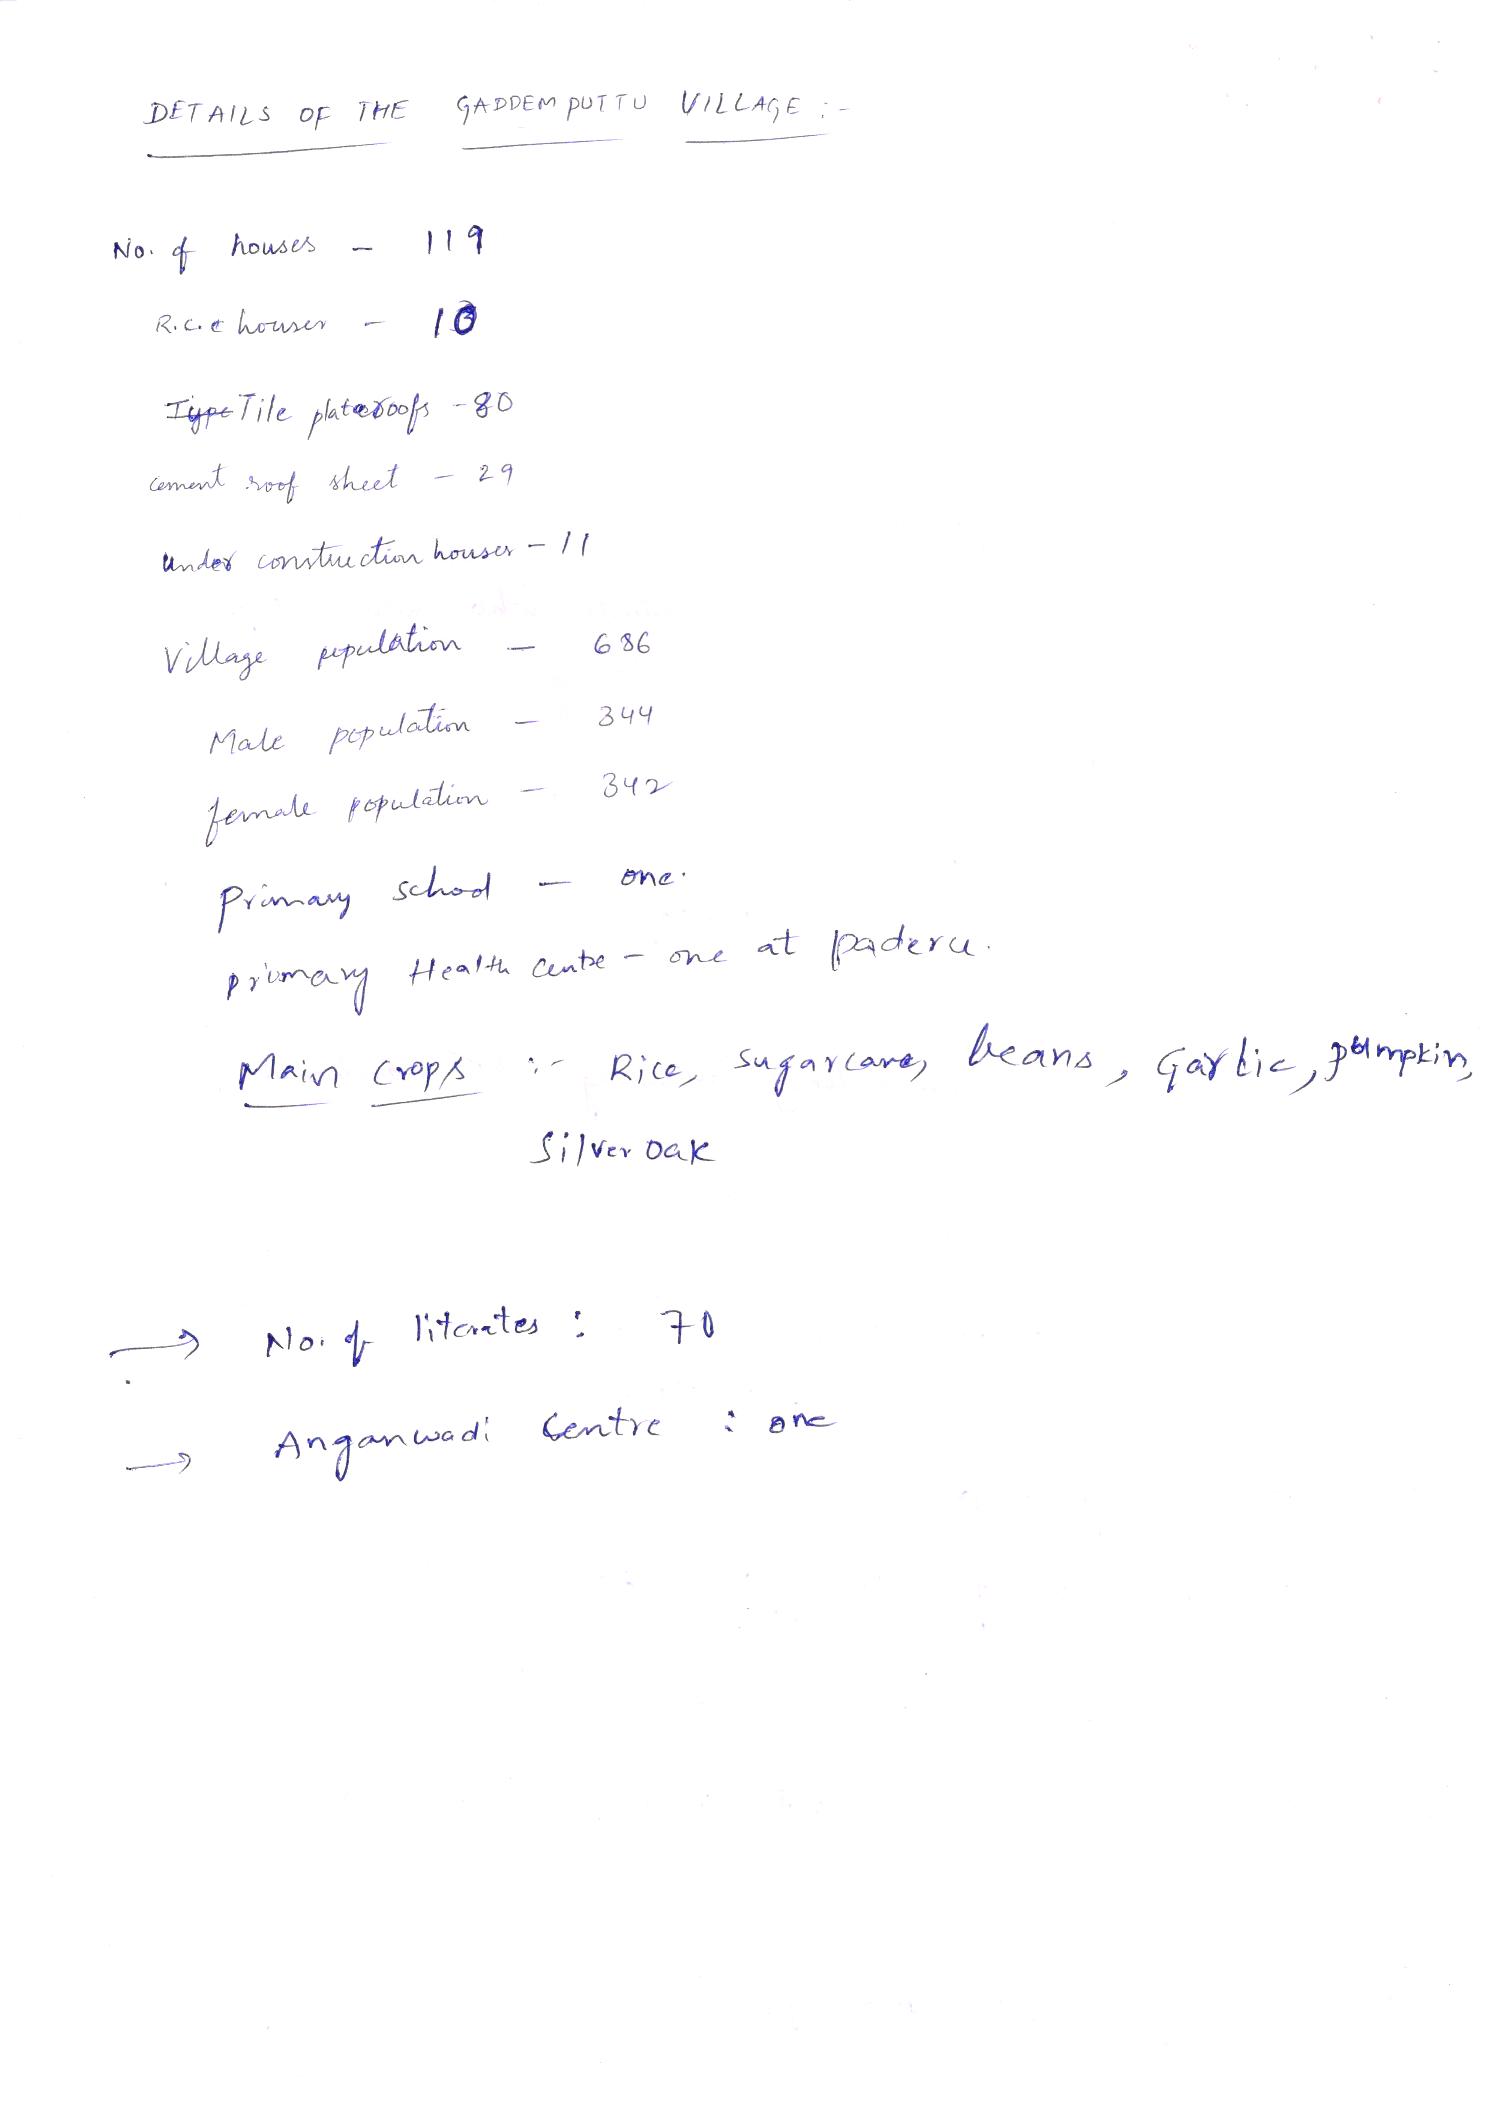 DETAILS OF THE GADDEMPUTTU VILLAGE :-
No. of houses - 119
R.C.C houses - 10
Type Tile plateroofs - 80
cement roof sheet - 29
Under construction houses - 11
Village population - 686
Male population - 344
female population - 342
Primary school - one.
primary Health centre - one at paderu.
Main crops :- Rice, sugarcane, beans, Garlic, pumpkin,
Silver oak
→ No. of literates : 70
→ Anganwadi Centre : one